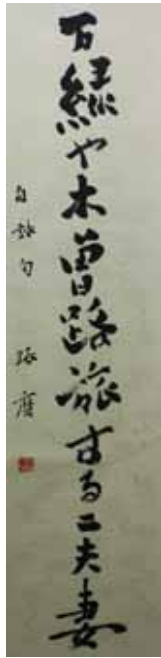 万緑や木曽路旅する二夫妻
自詠句